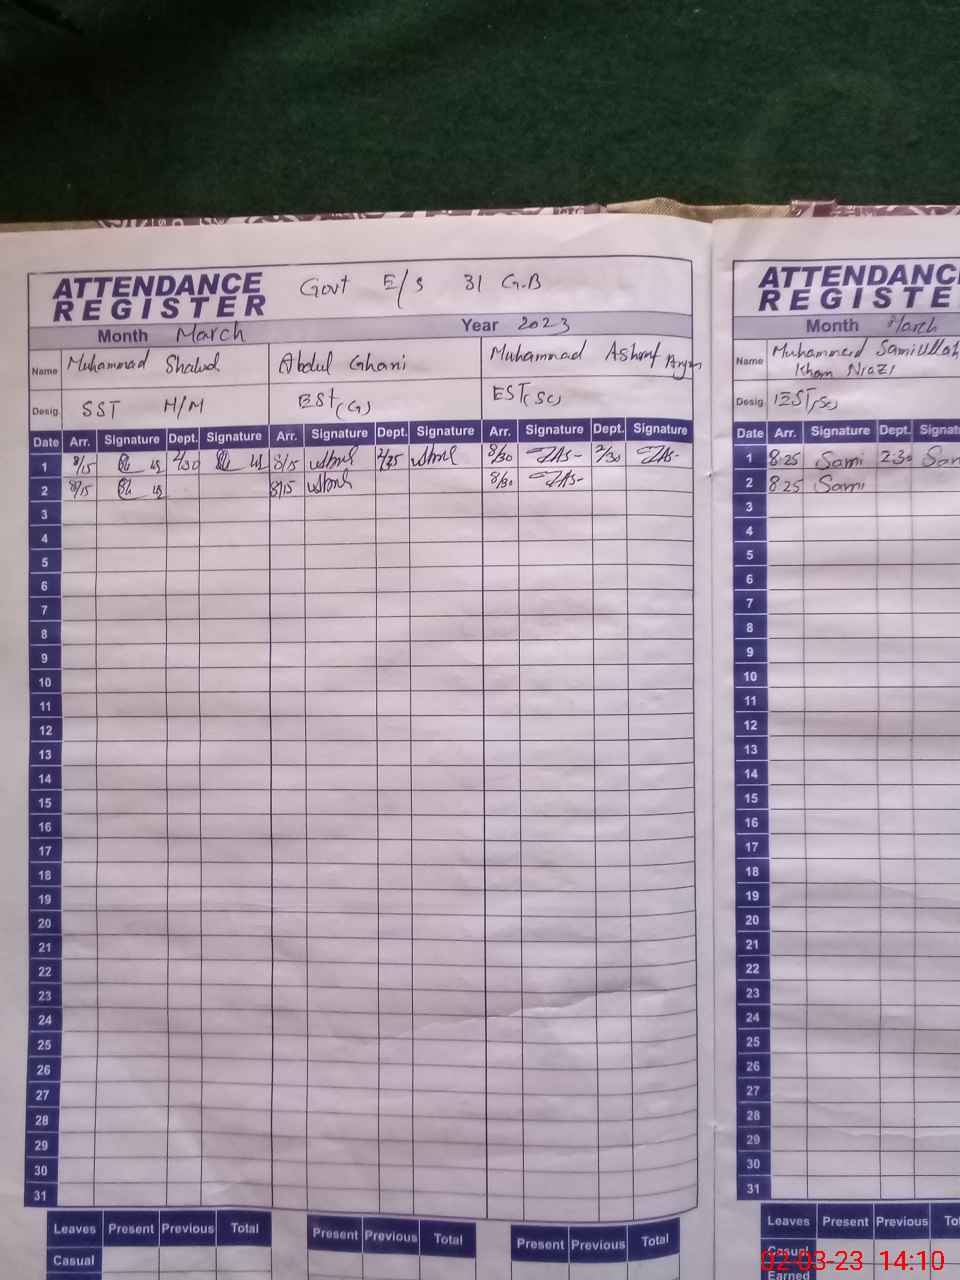 ATTENDANCE REGISTER
Govt E/S 31 G.B
Month March Year 2023
Name Muhammad Abdul Ghani Muhammad Ashraf
Desig. SST H/M EST(G) EST(SC)
Date Arr. Signature Dept. Signature Arr. Signature Dept. Signature Arr. Signature Dept. Signature
1 8/15 2/30 8/15 2/35 8/30 2/30
2 8/15 8/15 8/30
3
4
5
6
7
8
9
10
11
12
13
14
15
16
17
18
19
20
21
22
23
24
25
26
27
28
29
30
31
Leaves Present Previous Total Present Previous Total Present Previous Total
Casual
ATTENDANC
REGISTE
Month March
Name Muhammad Samiullah
Khan Niazi
Desig. EST(Sc)
Date Arr. Signature Dept. Signat
1 8.25 Sami 2.30 Sam
2 8.25 Sami
3
4
5
6
7
8
9
10
11
12
13
14
15
16
17
18
19
20
21
22
23
24
25
26
27
28
29
30
31
Leaves Present Previous To
Casual
Earned
02-03-23 14:10